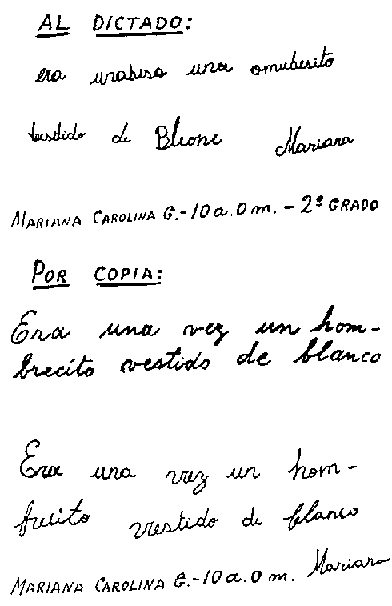 AL DICTADO:
era unabisa una omuberito
bestido de Blione Mariana
MARIANA CAROLINA G.-10 a. 0 m. - 2º GRADO
POR COPIA:
Era una vez un hom-
brecito vestido de blanco
Era una vez un hom-
brecito vestido de blanco
MARIANA CAROLINA G.-10 a. 0 m. Mariana